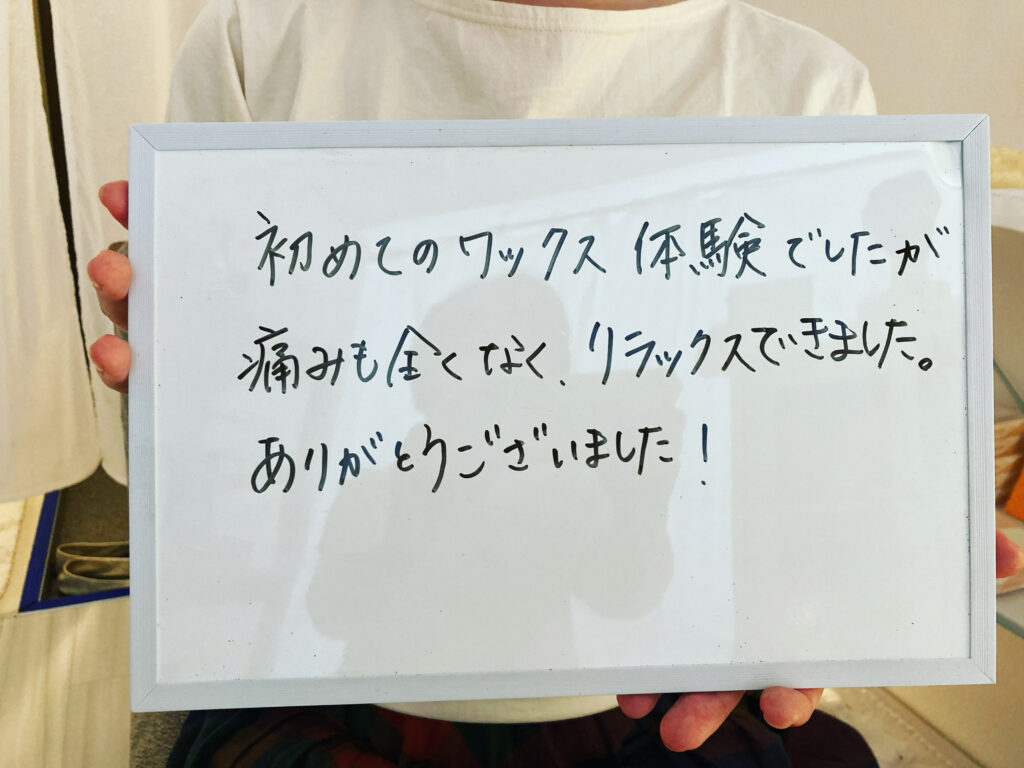 初めてのワックス体験でしたが
痛みも全くなく、リラックスできました。
ありがとうございました！